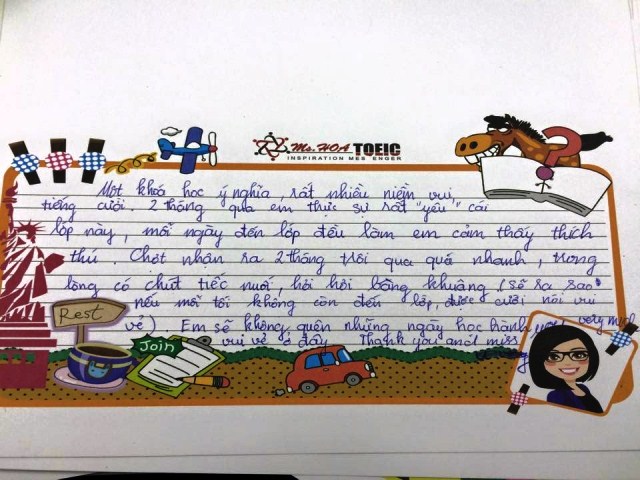 Ms. HOA TOEIC
INSPIRATION MESSENGER
Một khoá học ý nghĩa, rất nhiều niềm vui,
tiếng cười. 2 tháng qua em thực sự rất "yêu" cái
lớp này, mỗi ngày đến lớp đều làm em cảm thấy thích
thú. Chợt nhận ra 2 tháng trôi qua quá nhanh, trong
lòng có chút tiếc nuối, hơi hơi bâng khuâng (sẽ ra sao
nếu mỗi tối không còn đến lớp, được cười nói vui
vẻ). Em sẽ không quên những ngày học hành
vui vẻ ở đây. Thank you and miss you very much
Rest
Join